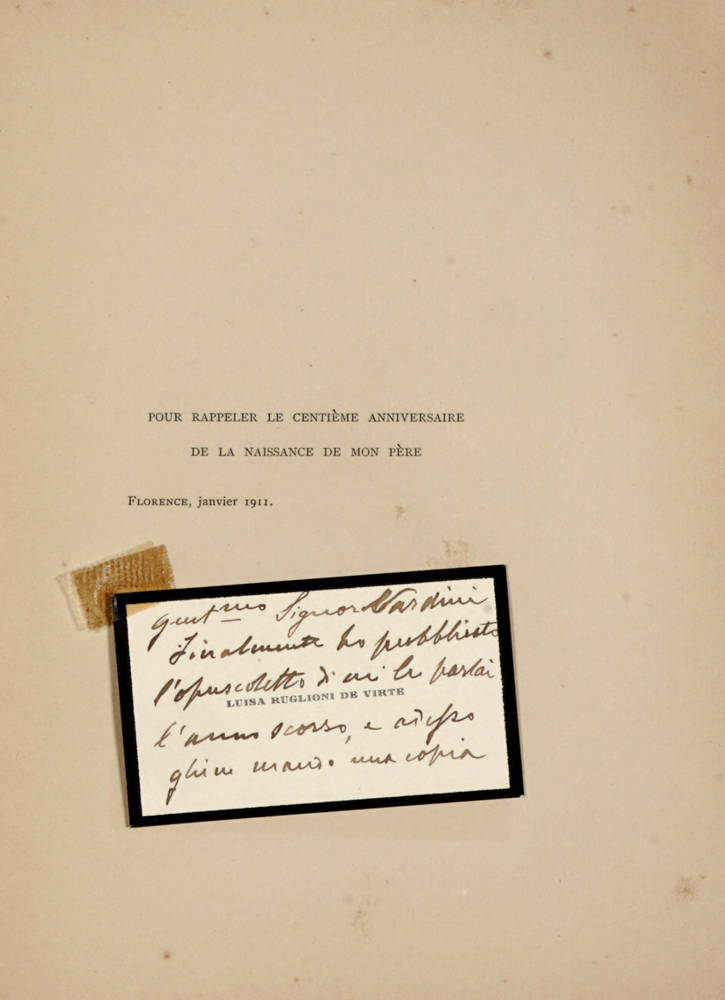 POUR RAPPELER LE CENTIÈME ANNIVERSAIRE
DE LA NAISSANCE DE MON PÈRE
FLORENCE, janvier 1911.
Gent.mo Signor Nardini
Finalmente ho pubblicato
l'opuscoletto di cui le parlai
LUISA RUGLIONI DE VIRTE
l'anno scorso, e adesso
gliene mando una copia